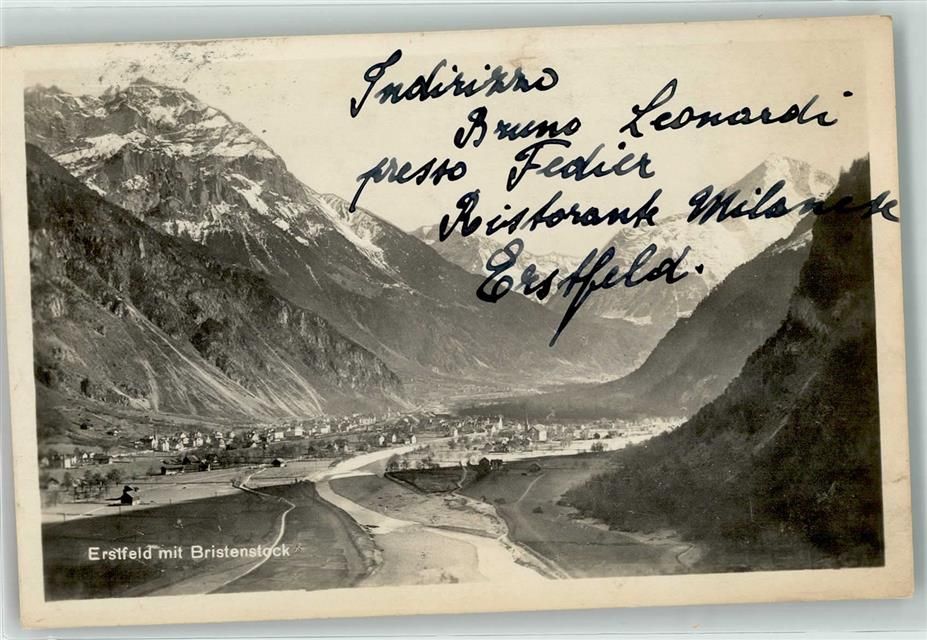 Indirizzo
Bruno Leonardi
presso Fedier
Ristorante Milanese
Erstfeld.
Erstfeld mit Bristenstock